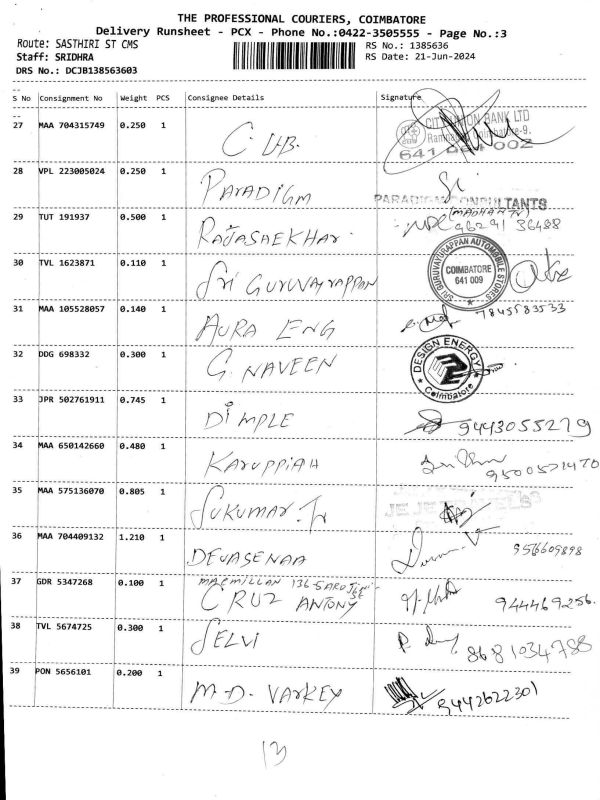 THE PROFESSIONAL COURIERS, COIMBATORE
Delivery Runsheet - PCX - Phone No.:0422-3505555 - Page No.:3
Route: SASTHIRI ST CMS
RS No.: 1385636
Staff: SRIDHRA
RS Date: 21-Jun-2024
DRS No.: DCJB138563603
S No Consignment No Weight PCS Consignee Details Signature
27 MAA 704315749 0.250 1 C.U.B. CITY UNION BANK LTD
641 002
28 VPL 223005024 0.250 1 PARADIGM
PARADIGM CONSULTANTS
29 TUT 191937 0.500 1 RAJASAEKHAR 96291 36488
30 TVL 1623871 0.110 1 SRI GURUVAYRAPPAN SRI GURUVAYURAPPAN AUTOMOBILE STORES COIMBATORE 641 009
31 MAA 105528057 0.140 1 AURA ENG 7845583533
32 DDG 698332 0.300 1 G. NAVEEN DESIGN ENERGY Coimbatore
33 JPR 502761911 0.745 1 DIMPLE 9443055279
34 MAA 650142660 0.480 1 KARUPPIAH 9500571470
35 MAA 575136070 0.805 1 SUKUMAR. Tr
36 MAA 704409132 1.210 1 DEVASENAA 956609898
37 GDR 5347268 0.100 1 MACMILLAN 136-
CRUZ ANTONY 944469256.
38 TVL 5674725 0.300 1 SELVI 8681034788
39 PON 5656101 0.200 1 M.D. VARKEY 9442622301
13